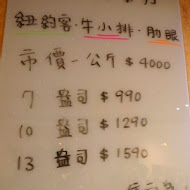 紐約客·牛小排·肋眼
市價一公斤 $4000
7 盎司 $990
10 盎司 $1290
13 盎司 $1590